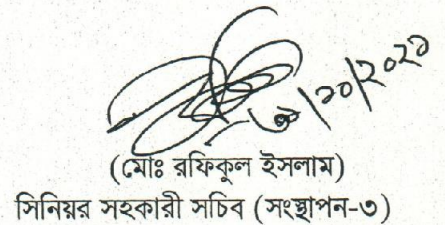 ৩/১০/২০২১
(মোঃ রফিকুল ইসলাম)
সিনিয়র সহকারী সচিব (সংস্থাপন-৩)